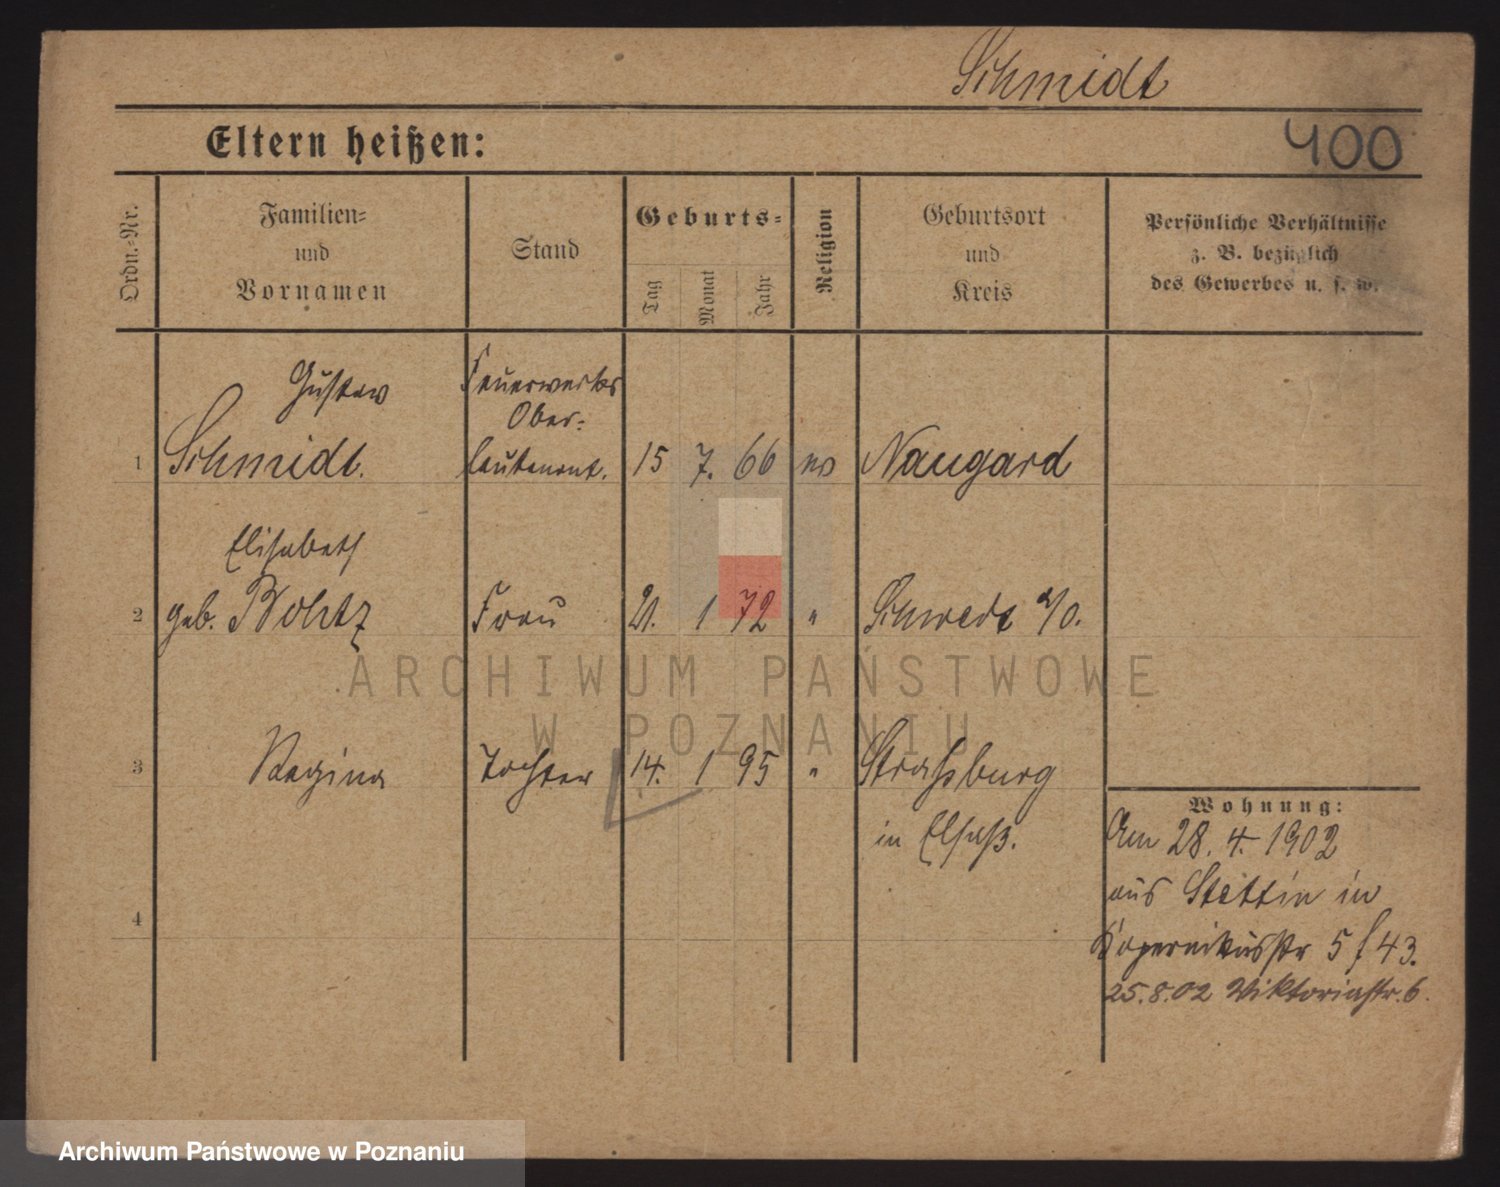 Schmidt
Eltern heißen:
400
Ordn.-Nr.
Familien-
und
Vornamen
Stand
Geburts-
Tag
Monat
Jahr
Religion
Geburtsort
und
Kreis
Persönliche Verhältnisse
z. B. bezüglich
des Gewerbes u. s. w.
Gustav
Feuerwerks
Ober-
1 Schmidt. leutenant. 15 7. 66 ev Naugard
Elisabeth
2 geb. Bohtz Frau 21. 1 72 " Schwedt a/O.
3 Regina Tochter 14. 1 95 " Straßburg
in Elsaß.
4
Wohnung:
Am 28. 4. 1902
aus Stettin in
Kopernikusstr 5 f 43.
25.8.02 Viktoriastr. 6.
ARCHIWUM PAŃSTWOWE
W POZNANIU
Archiwum Państwowe w Poznaniu